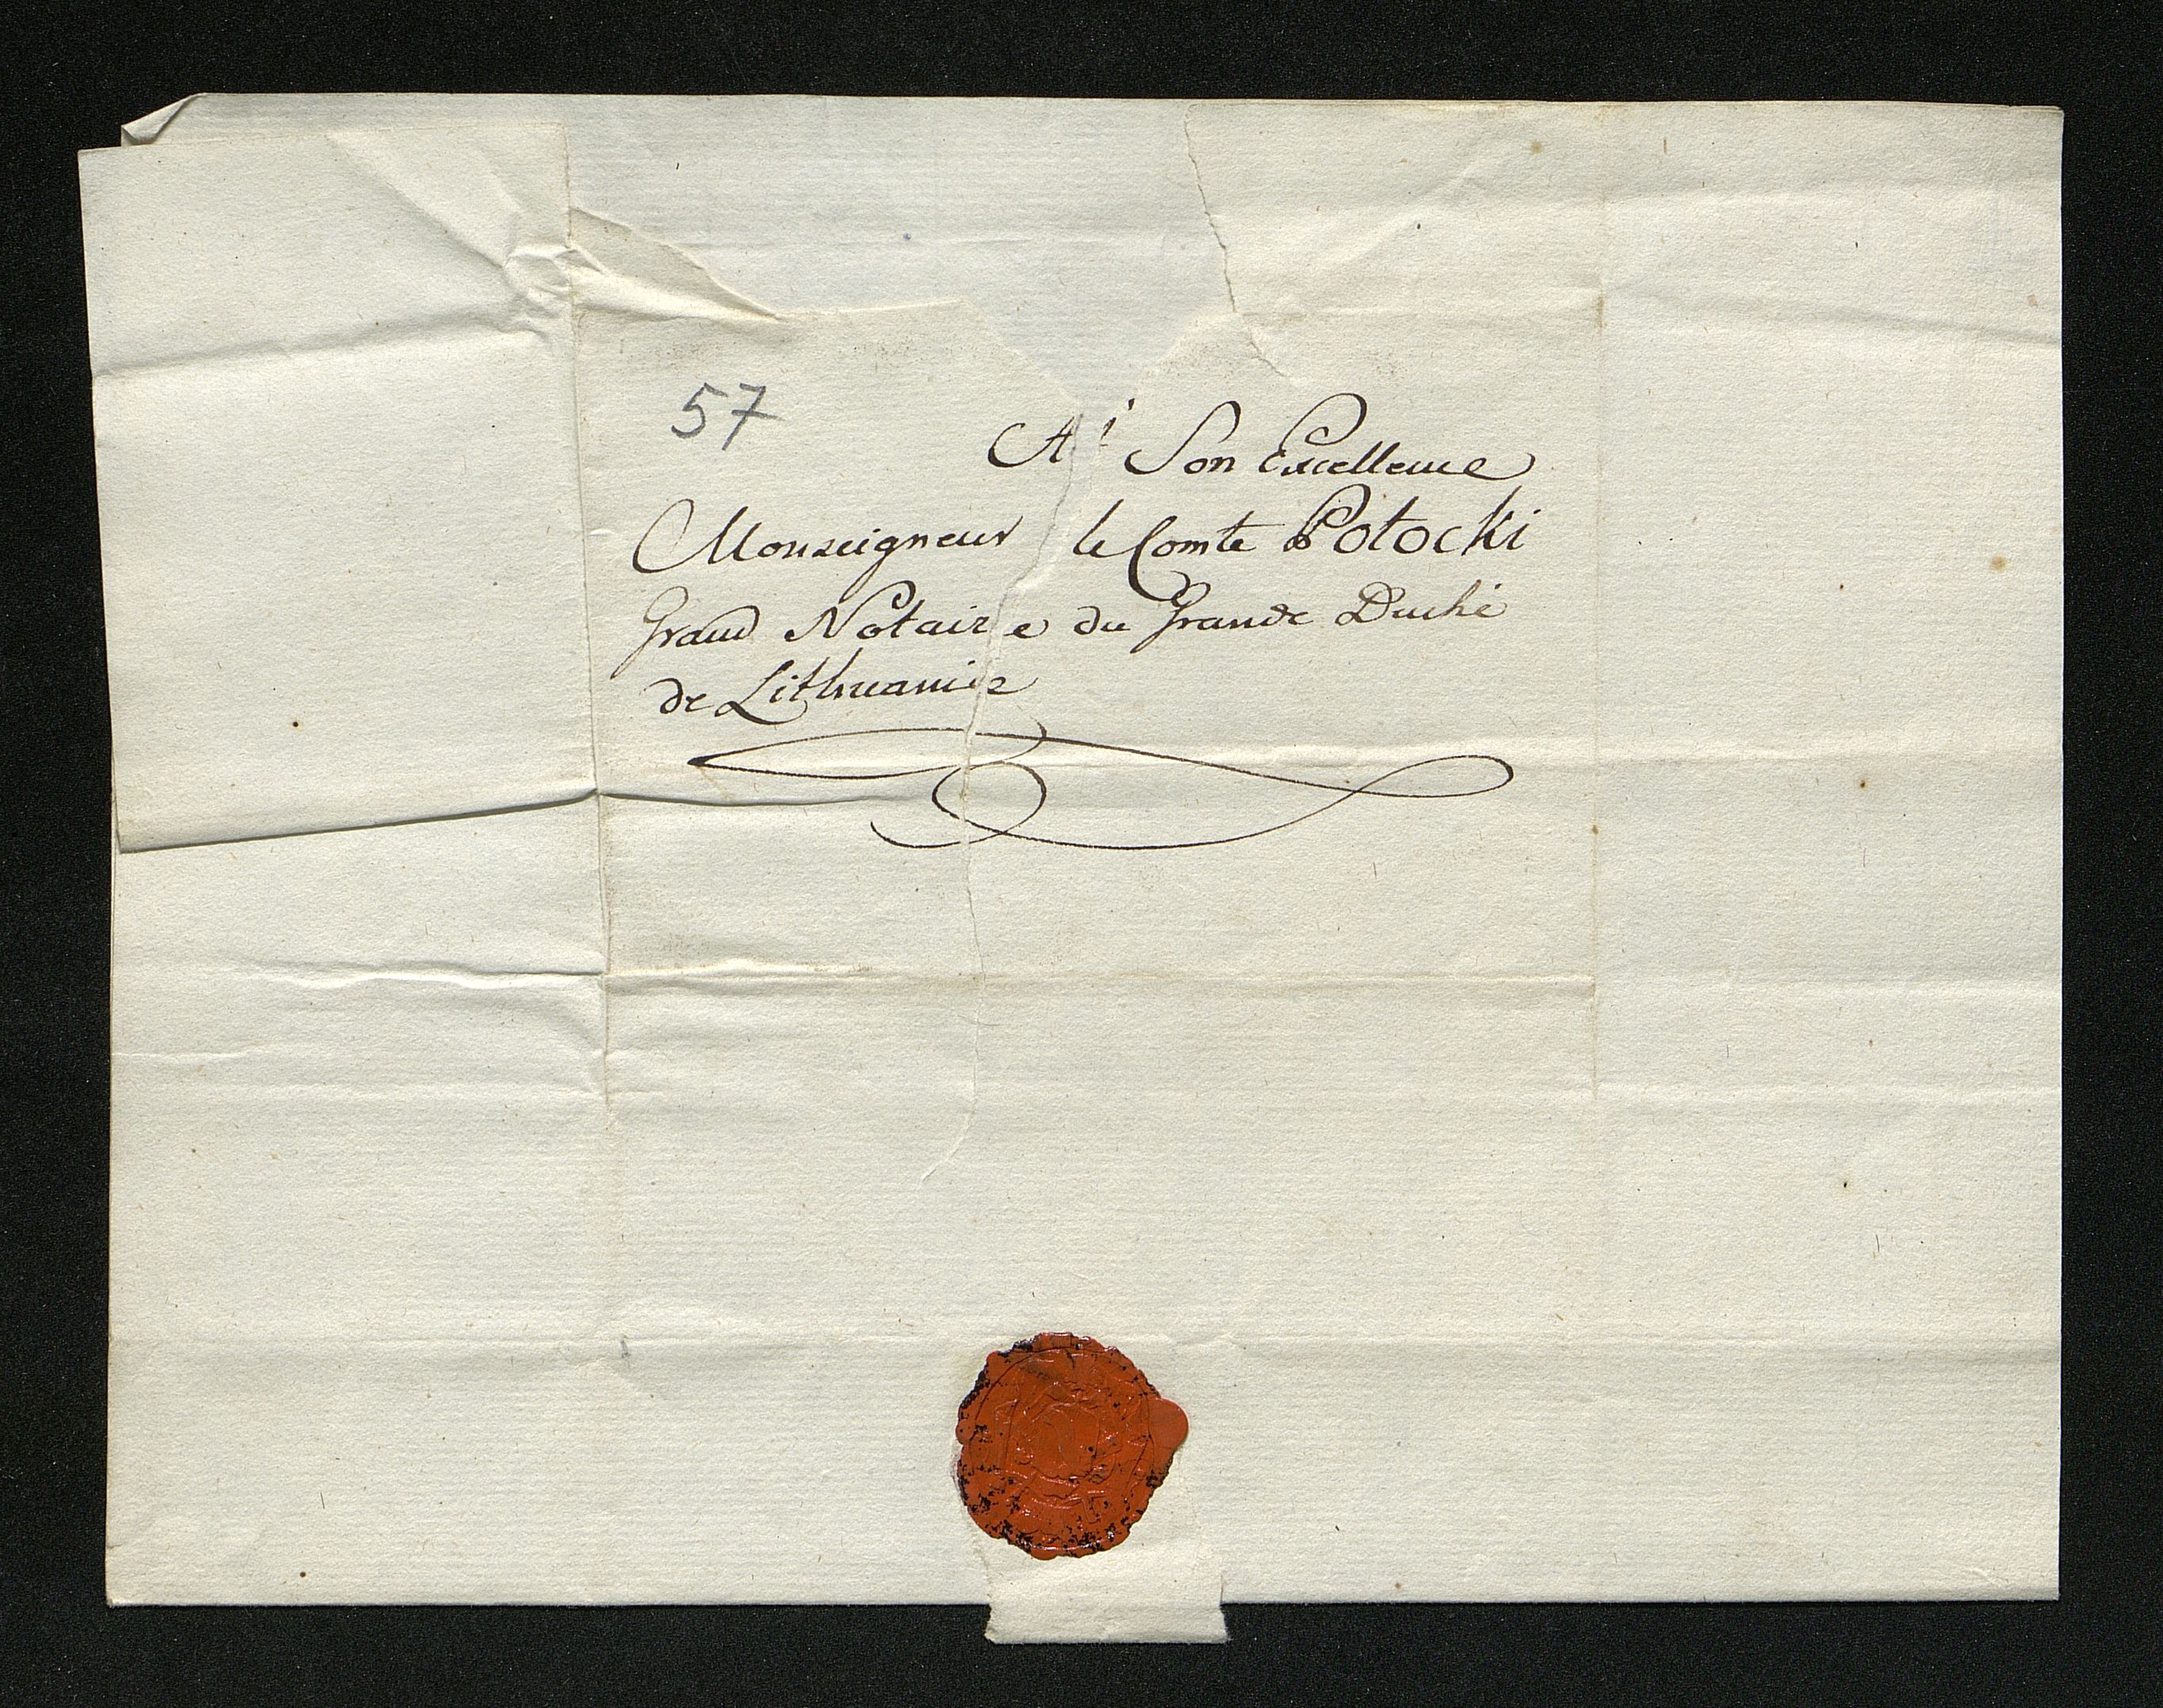 57
A' Son Excellence
Monseigneur le Comte Potocki
Grand Notaire du Grande Duché
de Lithuanie